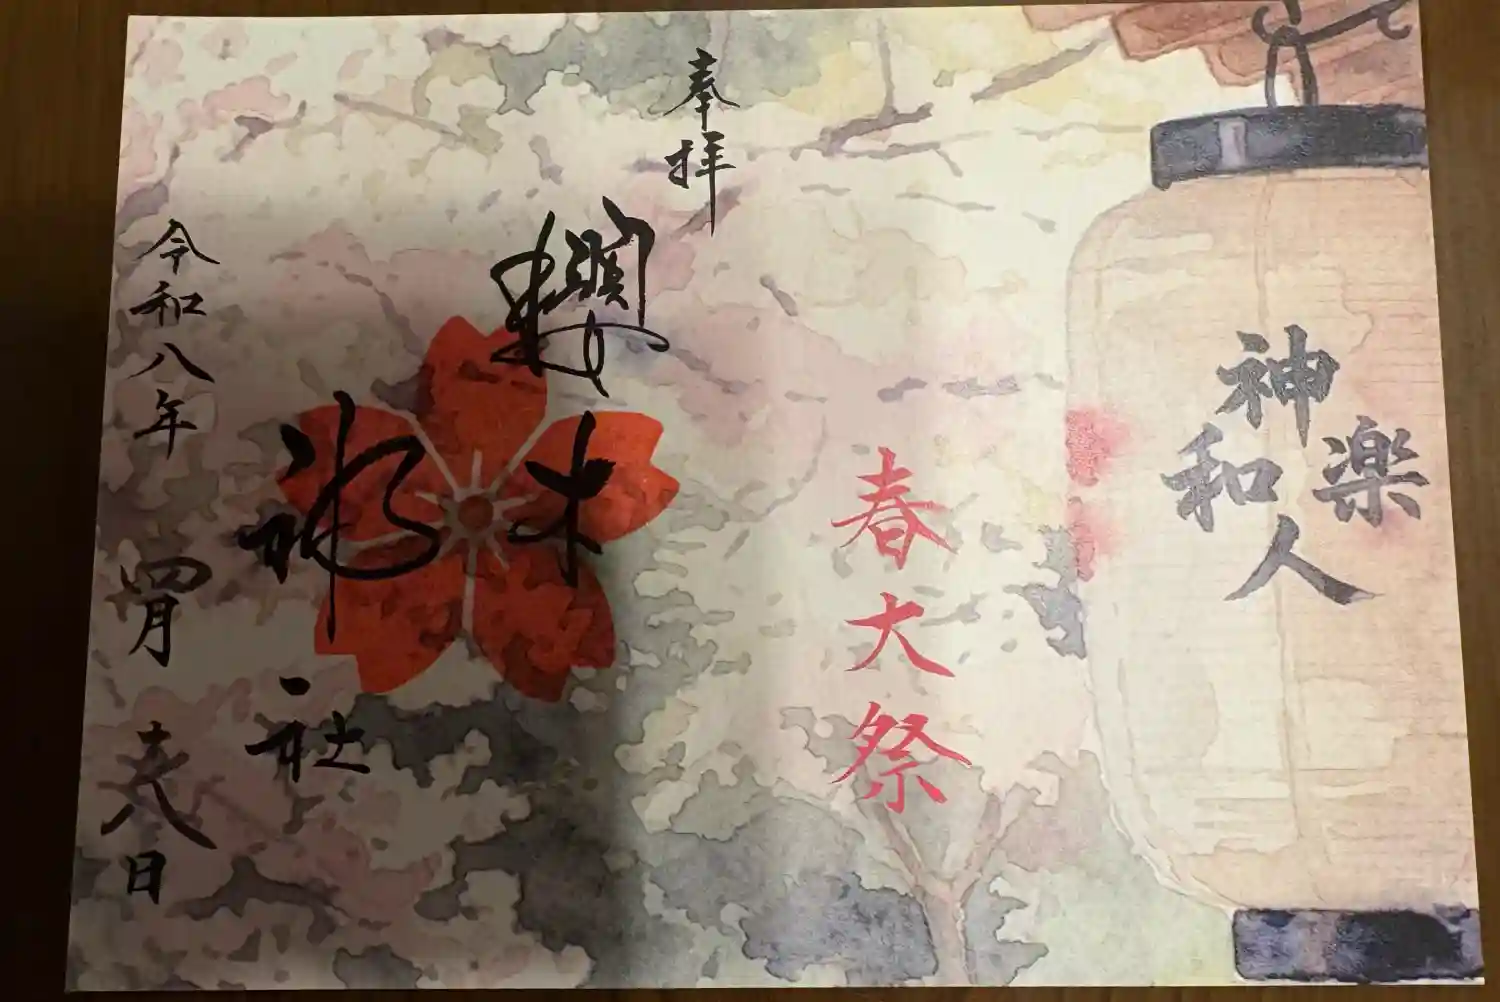 神人和楽
春大祭
奉拝
櫻木
神社
令和八年四月八日